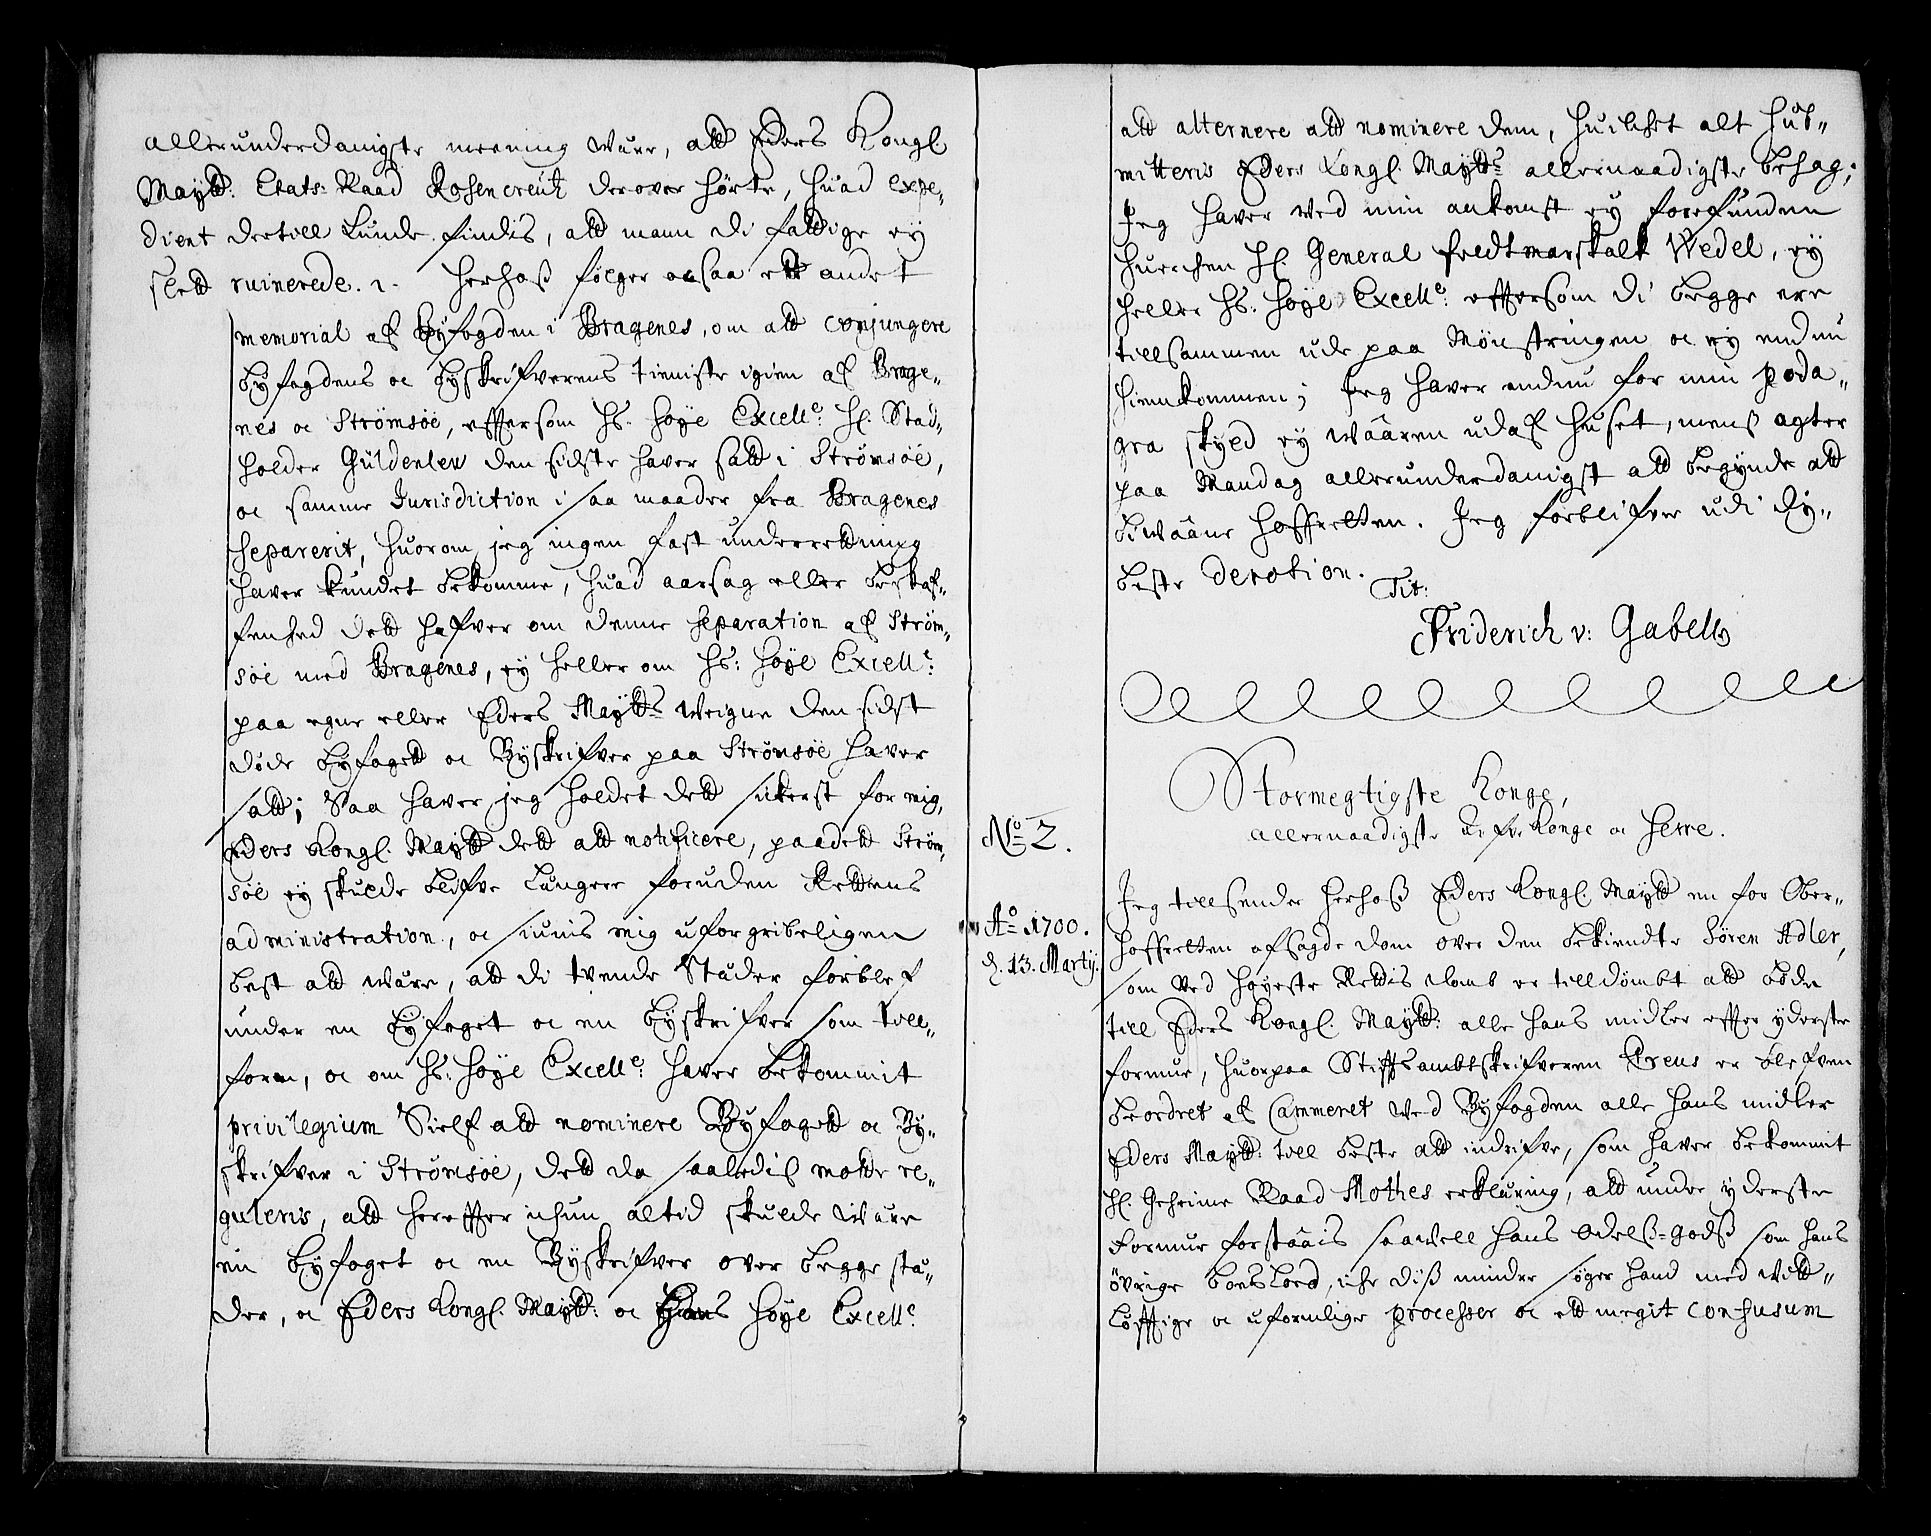 allerunderdanigste meening waar, att Eders Kongl.
Maytt: Etats-Raad Rosencreutz derover hørte, huad expe„
dient dertill kunde findis, att mann di fattige ey
slett ruinerede. 1. Herhoß følger ocsaa ett andet
memorial af Byfogden i Bragenes, om att conjungere
byfogdens oc byskrifverens tieniste igien af Brage„
nes oc Strømsøe, effersom Hs. Høye Excell: H. Stad„
holder Güldenlew den sidste haver satt i Strømsøe,
oc samme Jurisdiction i saa maader fra Bragenes
separerit, huorom jeg ingen fast underrettning
haver kundet bekomme, huad aarsag eller beskaf„
fenhed dett hafver om denne separation af Strøm„
søe med Bragenes, ey heller om Hs: Høye Excell:
paa egne eller Eders Maytts weigne den sidst
døde byfogett oc Byskrifver paa Strømsøe haver
satt; Saa haver jeg holdet dett sikerst for mig,
Eders Kongl. Maytt dett att notificere, paadett Strøm„
søe ey skulde blifve lungere foruden Rettens
administration, oc siunis mig uforgribeligen
best att ware, att di tvende Stæder forblef
under en byfoget oc en byskrifver som till„
forn, oc om Hs: Høye Excell: haver bekommit
privilegium Sielf att nominere Byfogett oc By„
skrifver i Strømsøe, dett da saaledis motte re„
guleris, att hereffter ichun altid skulde wære
en byfoget oc en Byskrifver over begge stæ„
der, oc Eders Kongl. Maytt: oc Hans Høye Excell:
att alternere att nominere dem, huilket alt sub„
mitteris Eders Kongl. Maytts allernaadigste behag;
Jeg haver ved min ankomst ey forefunden
huerchen H. General feldtmarskalk Wedel, ey
heller Hs. Høye Excell: effersom di begge ere
tillsammen ude paa Mønstringen oc ey endnu
hiemkommen; Jeg haver endnu for min poda„
gra skyld ey wäären udaf huset, menß agter
paa Mandag allerunderdanigst att begynde att
biwääne hoffretten. Jeg forblifver udi dy„
beste devotion.
Tit:
Friderich v: Gabell
No 2.
Stormegtigste Konge,
allernaadigste Arfve Konge oc Herre.
Ao 1700.
d. 13. Martij.
Jeg tillsender herhoß Eders Kongl. Maytt en for Ober„
hoffretten afsagde dom over den bekiendte Søren Adler,
som ved høyeste Rettis dom er tilldømbt att bøde
till Eders Kongl. Maytt: alle hans midler effter yderste
formue, huorpaa Stifftsambtskrifveren Kreus er blefven
beordret af Cammeret ved Byfogden alle hans midler
Eders Maytt: till beste att indrifve, som haver bekommit
H. Geheime Raad Mothes erkluring, att under yderste
Formue forstääis saawell hans Odelß-godß som hans
øvrige boeslod, iche diß minder søger hand med witt„
løfftige oc uformlige processer oc ett megit confusum